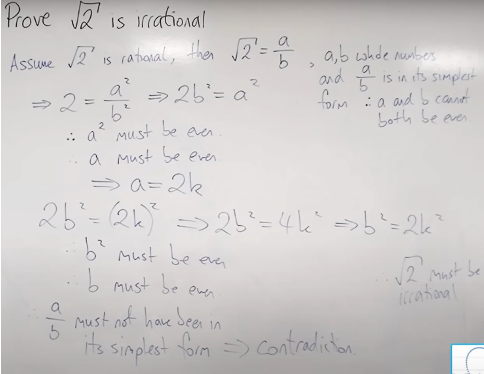 Prove √2 is irrational
Assume √2 is rational, then √2 = a/b , a,b whole numbers
and a/b is in its simplest
form ∴ a and b cannot
both be even
⇒ 2 = a²/b² ⇒ 2b² = a²
∴ a² must be even
∴ a must be even
⇒ a = 2k
2b² = (2k)² ⇒ 2b² = 4k² ⇒ b² = 2k²
∴ b² must be even
∴ b must be even
∴ a/b must not have been in
its simplest form ⇒ contradiction
∴ √2 must be
irrational